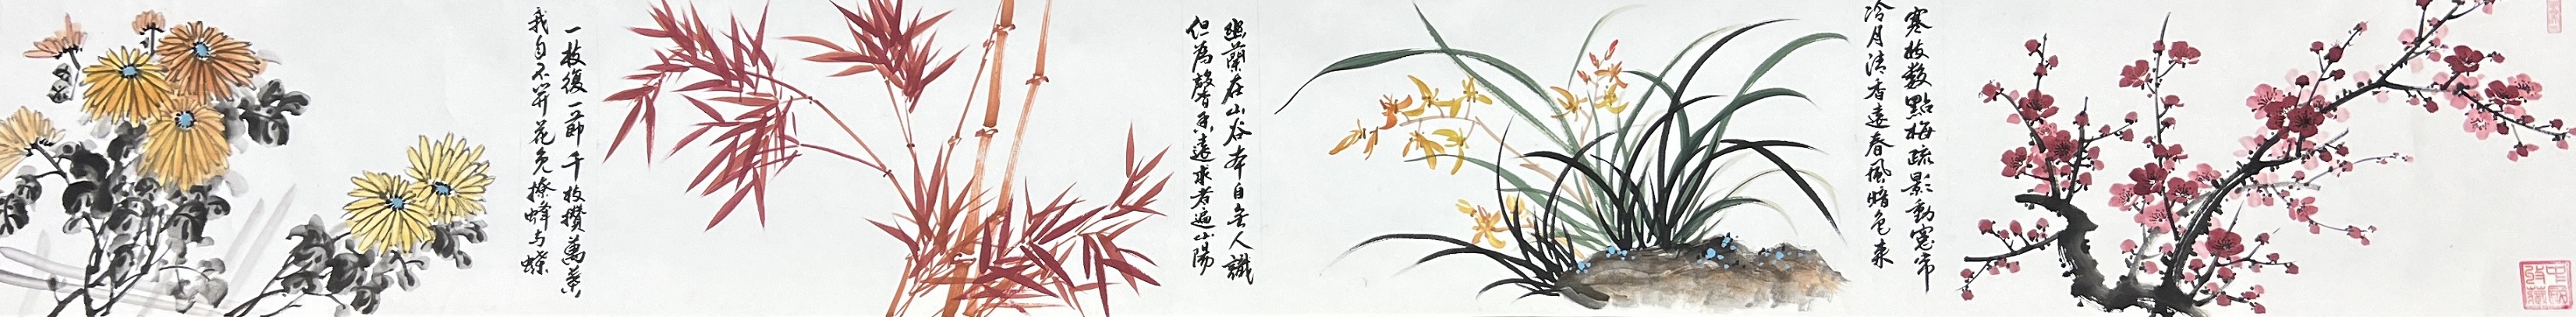 寒枝数點梅疏影動窓帘
冷月清香遠春風暗色来
幽蘭在山谷本自無人識
但為馨香遠求者遍山陽
一枝復一節千枝攢萬葉
我自不開花免撩蜂与蝶